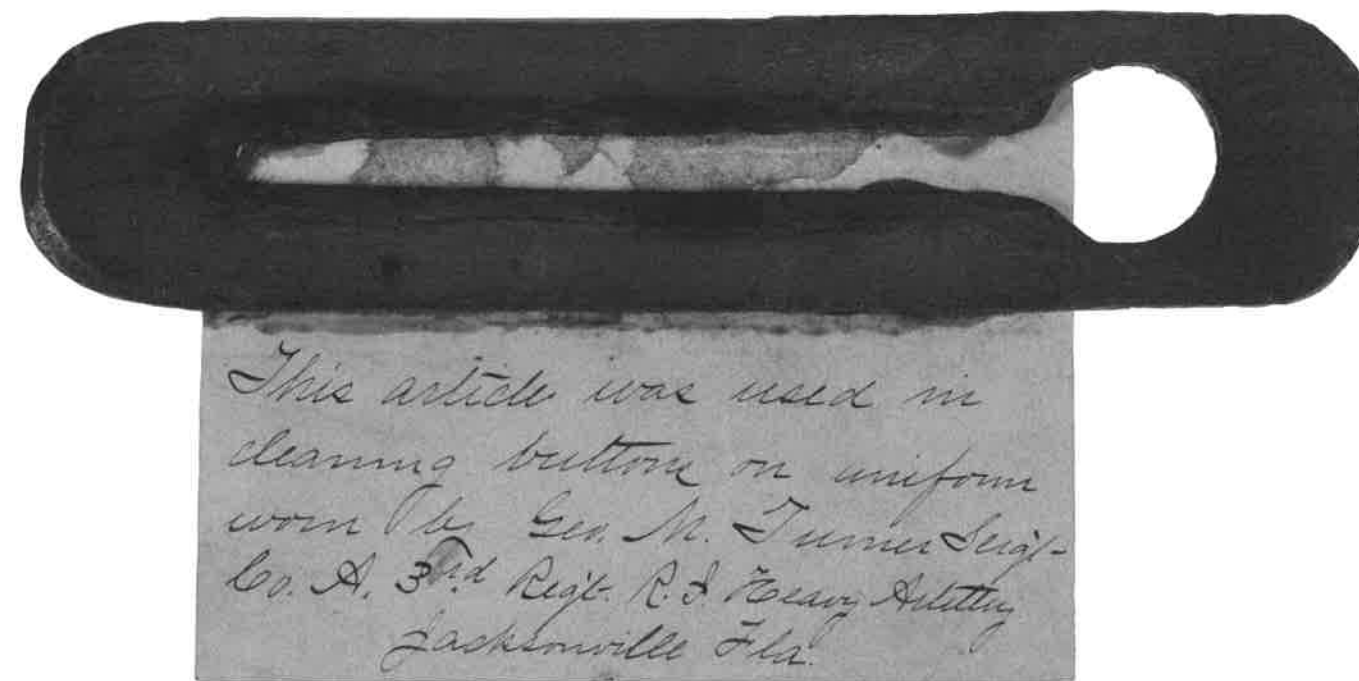 This article was used in
cleaning buttons on uniform
worn by Geo. M. Turner Sergt-
Co. A. 3rd Regt. R.I. Heavy Artillery
Jacksonville Fla.